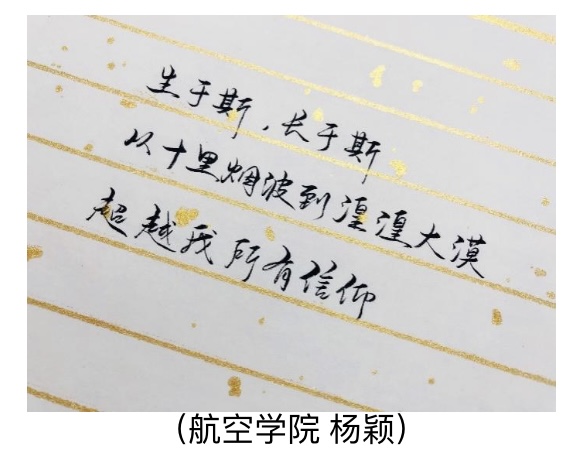 生于斯，长于斯
从十里烟波到湟湟大漠
超越我所有信仰
（航空学院 杨颖）